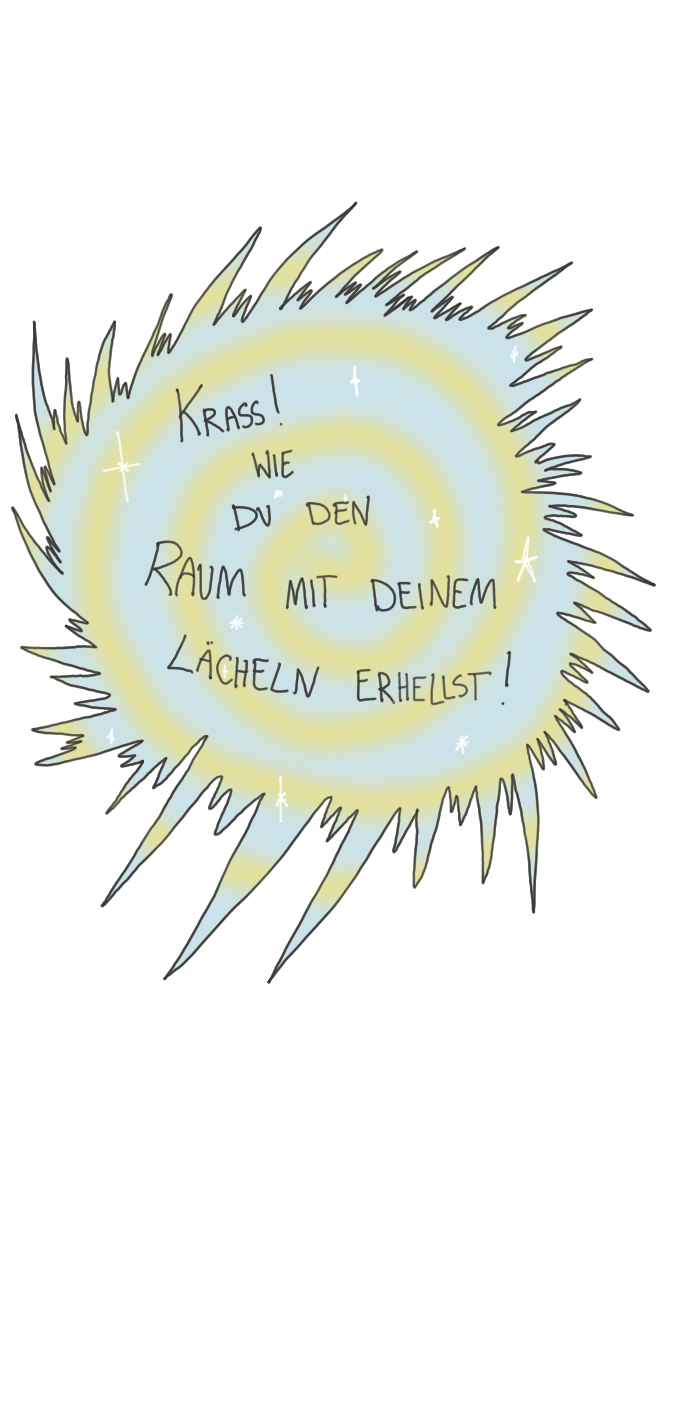 KRASS!
WIE
DU DEN
RAUM MIT DEINEM
LÄCHELN ERHELLST!